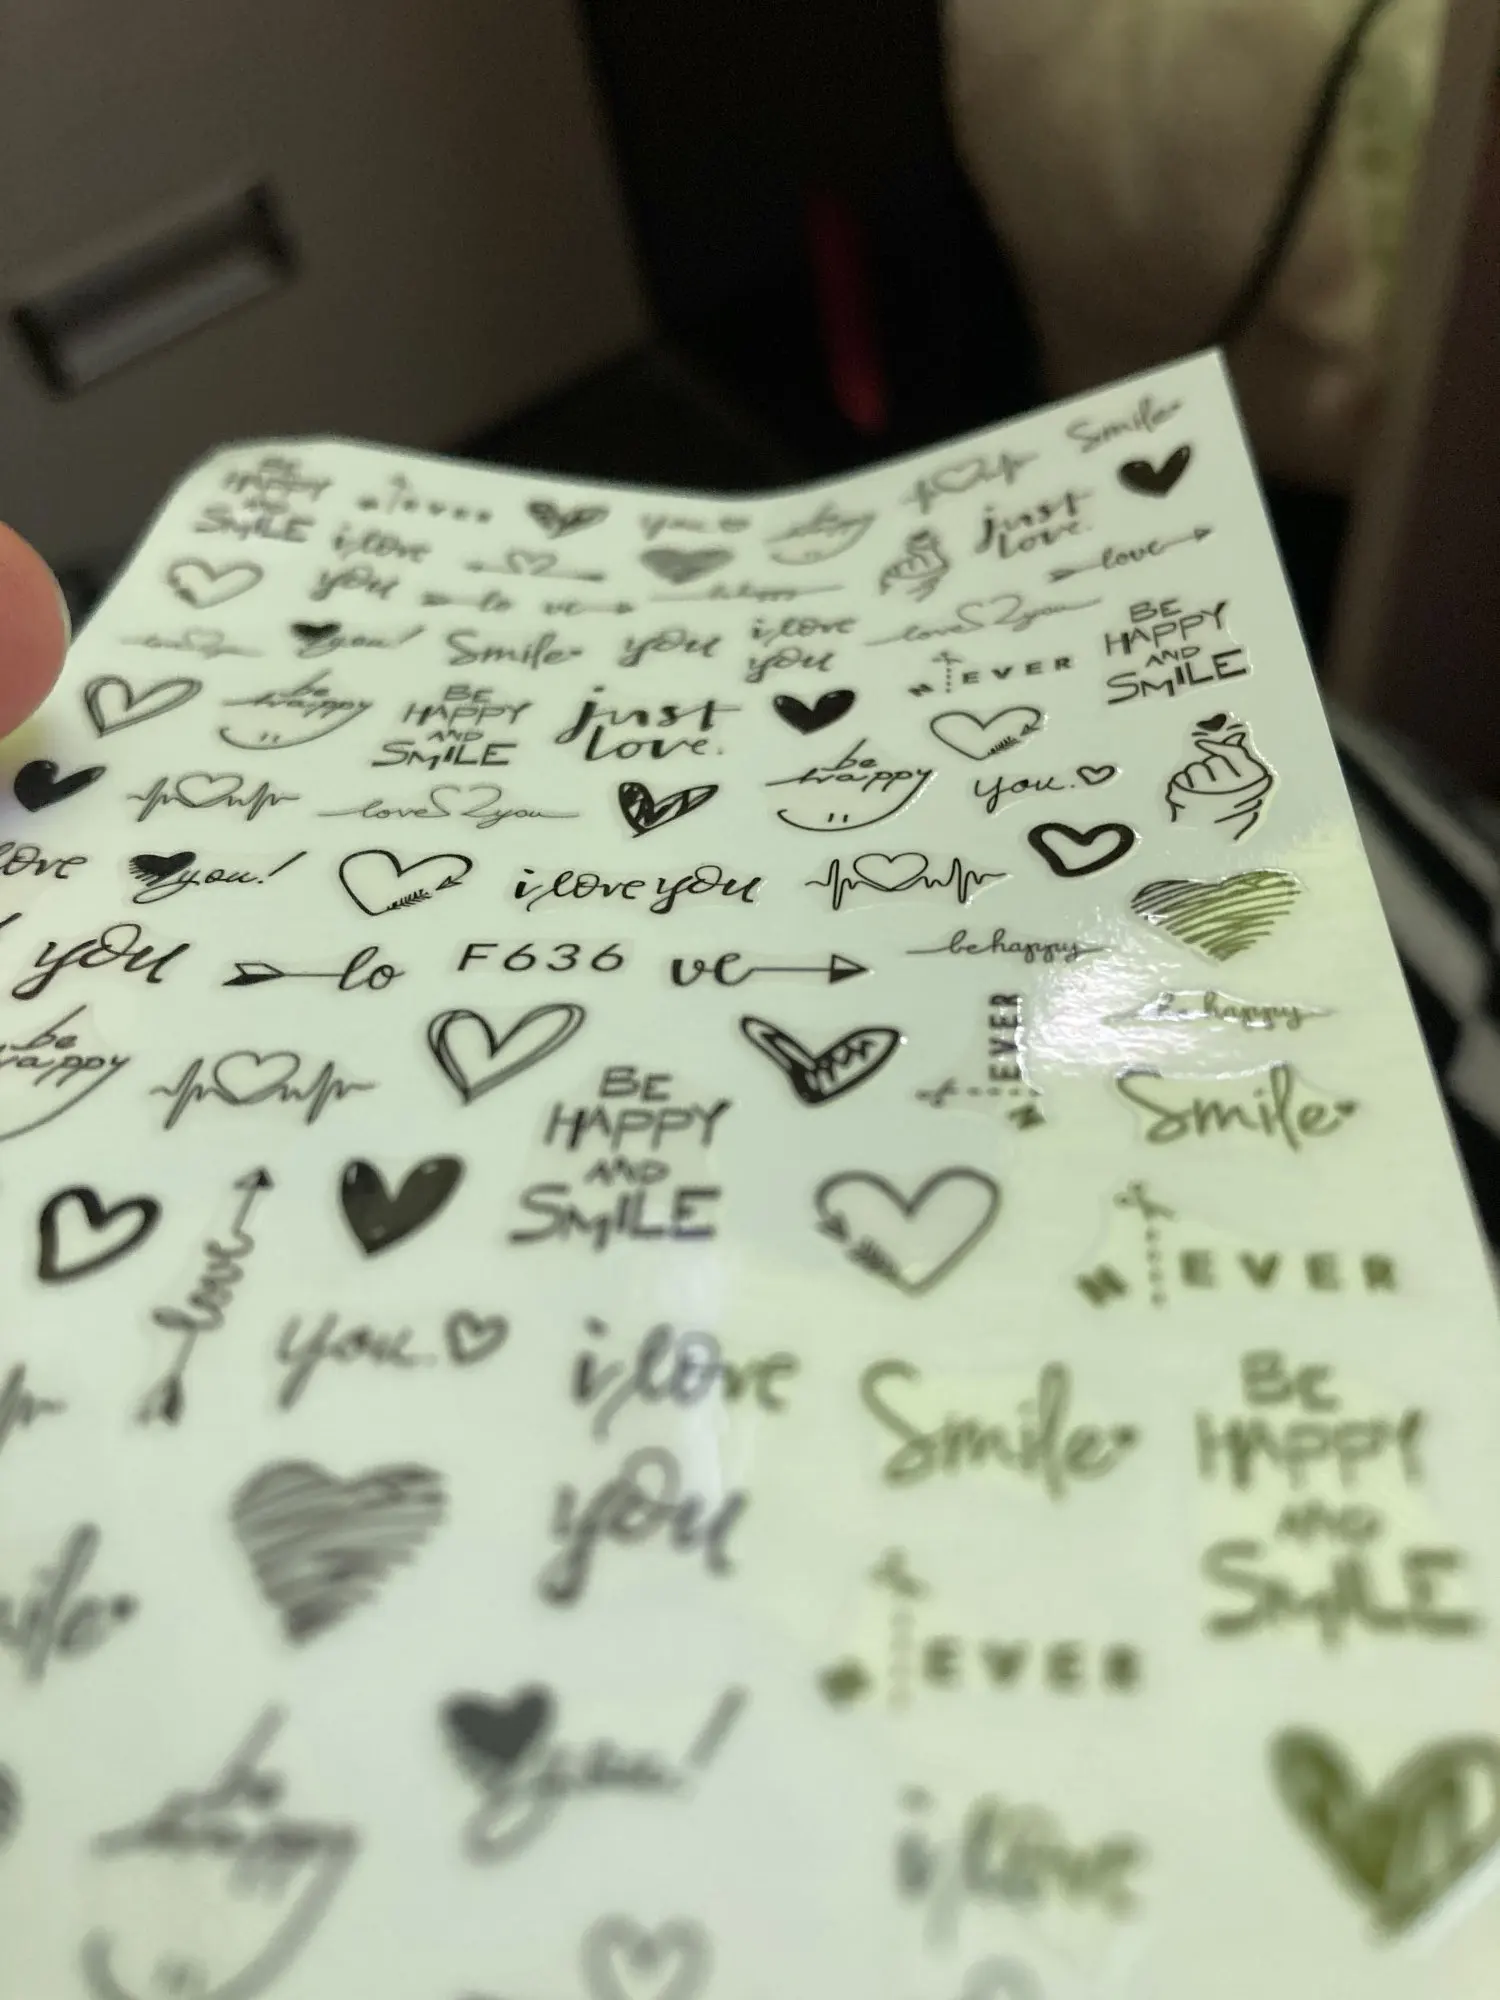 Smile
BE
HAPPY
AND
SMILE
N EVER
you.
be
happy
just
love.
i love
you
lo ve
be happy
love
love you
you!
Smile
you
i love
you
love you
N EVER
BE
HAPPY
AND
SMILE
be
happy
BE
HAPPY
AND
SMILE
just
love.
be
happy
you.
love you
love
you!
i love you
you
lo
F636
ve
be happy
be
happy
N EVER
be happy
BE
HAPPY
AND
SMILE
Smile
love
N EVER
you.
i love
you
Smile
BE
HAPPY
AND
SMILE
N EVER
be
happy
you!
i love